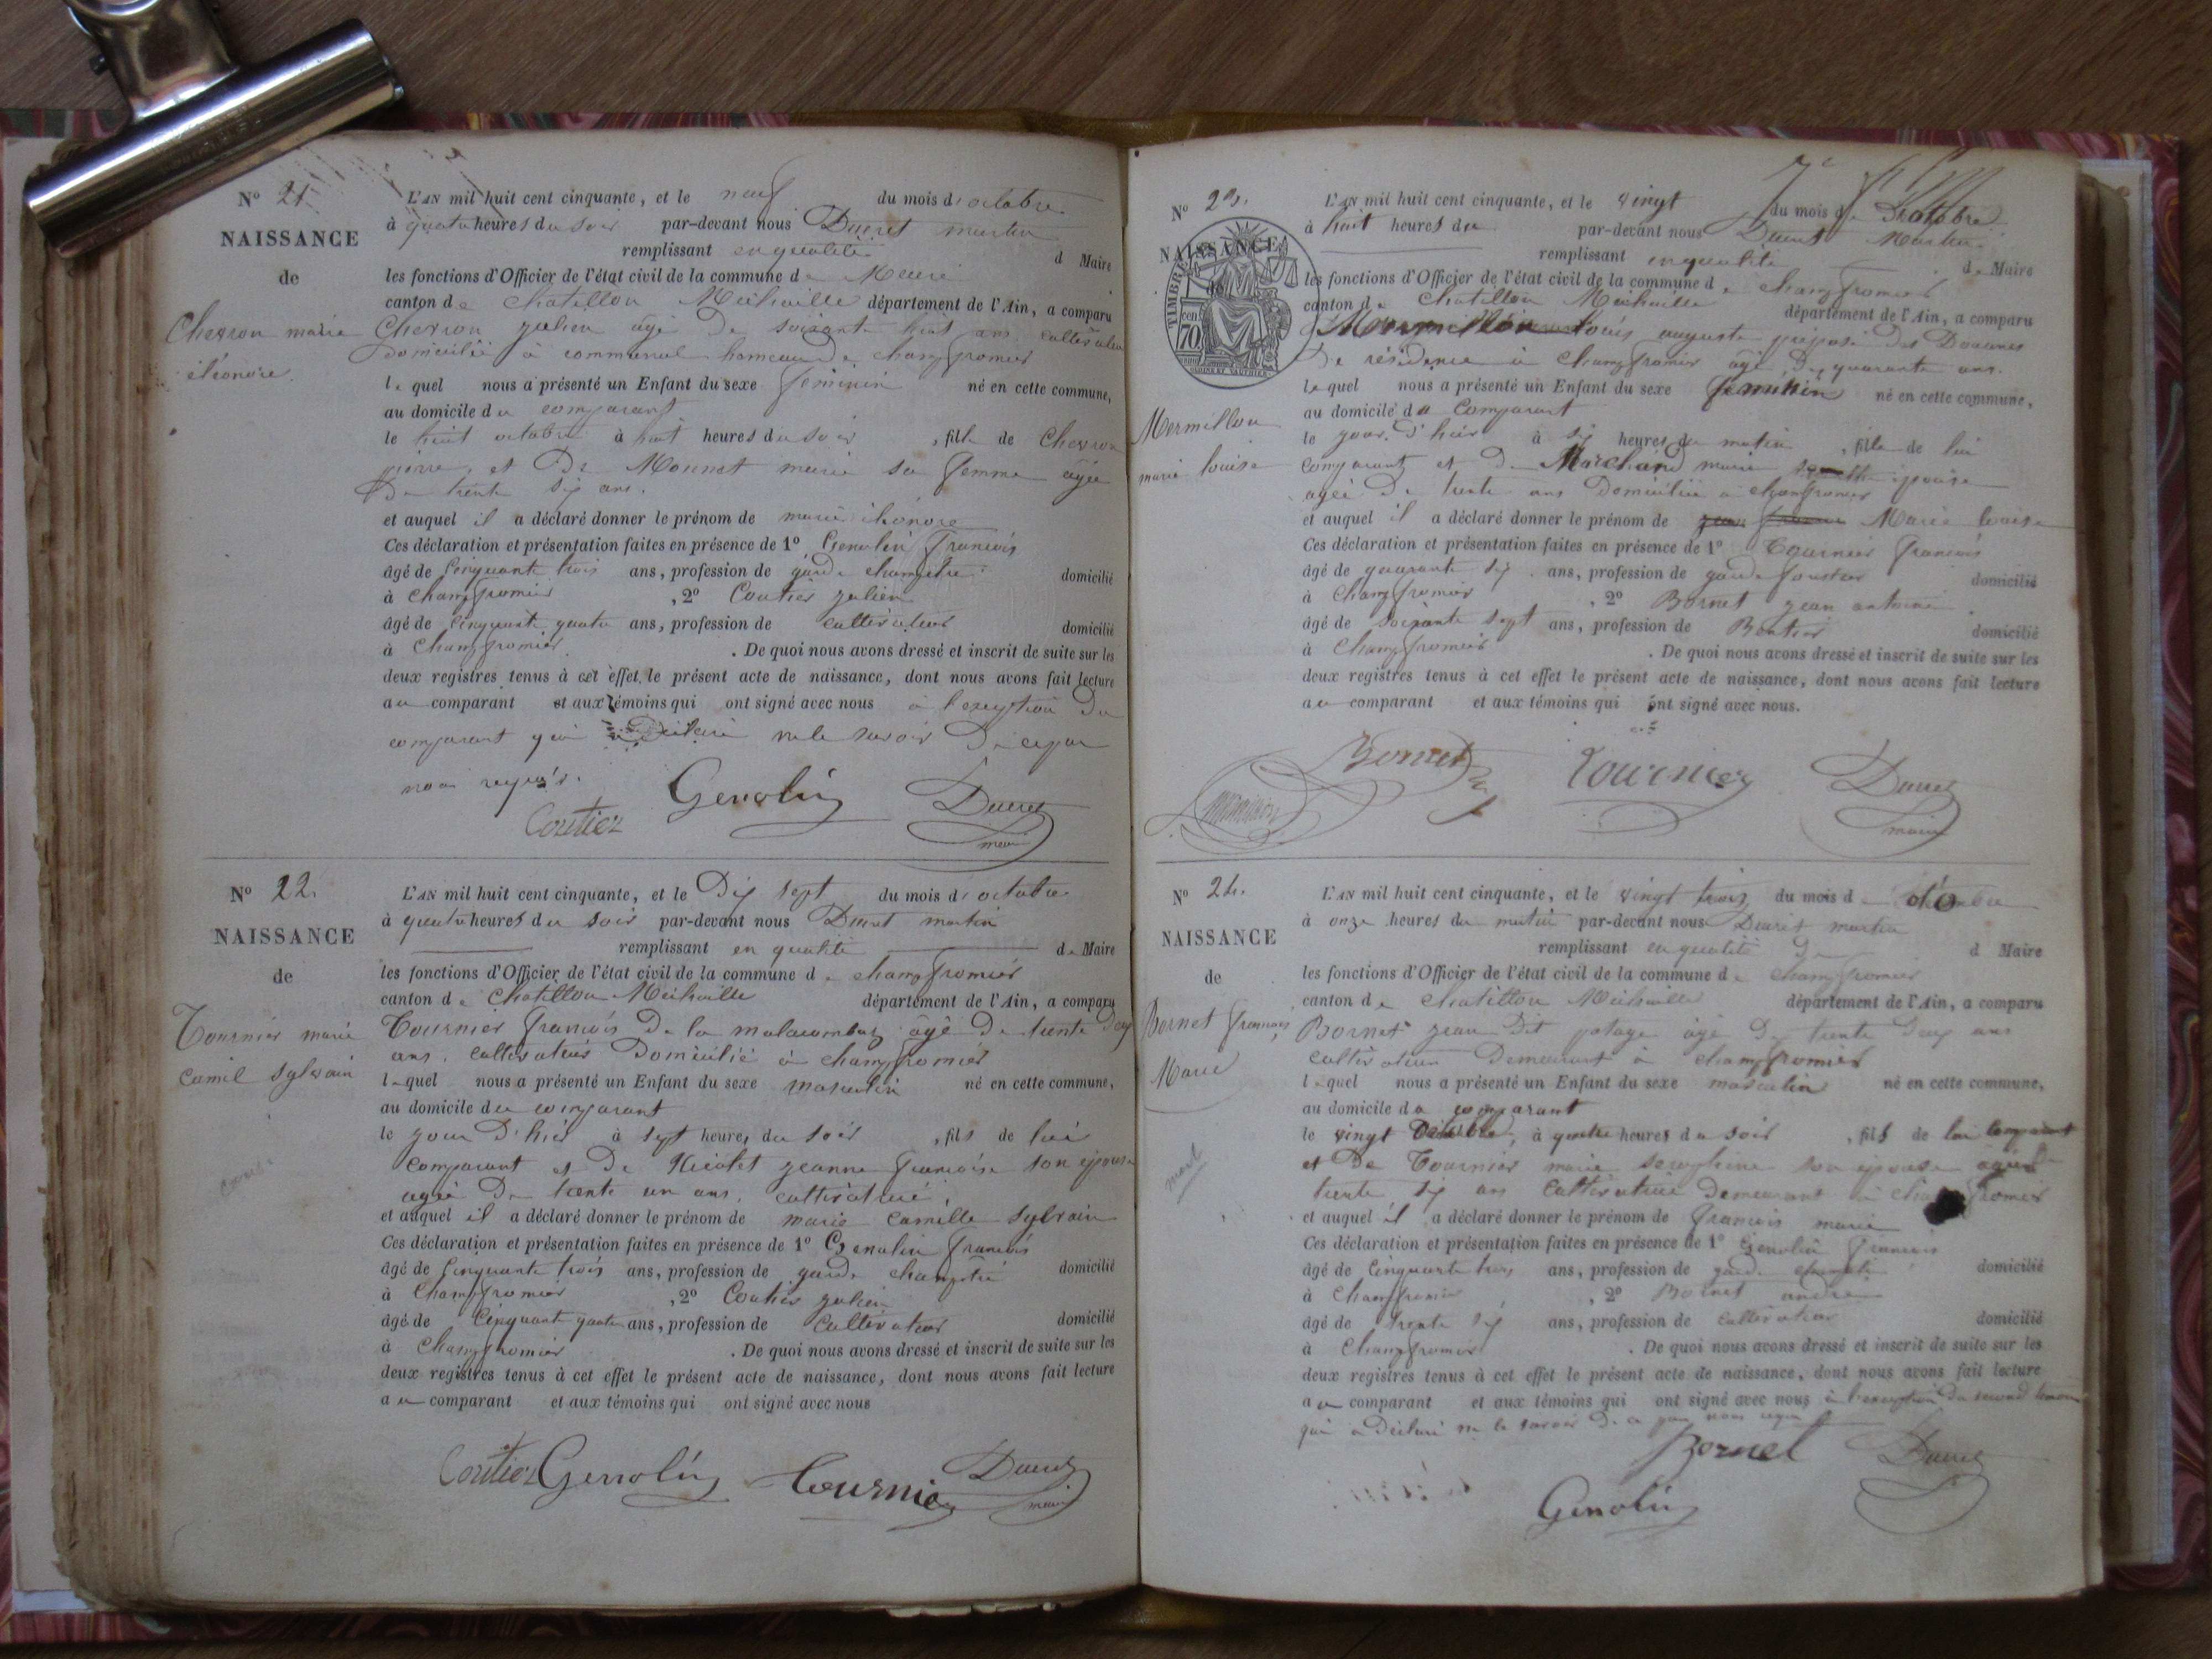 N° 21
NAISSANCE
de
Chevron marie
éléonore
L'AN mil huit cent cinquante, et le neuf du mois d'octobre
à quatre heures du soir par-devant nous Ducret martin
remplissant en qualité d Maire
les fonctions d'Officier de l'état civil de la commune de
canton de Chatillon Michaille département de l'Ain, a comparu
Chevron julien âgé de soixante huit ans cultivateur
domicilié à communal hameau de champfromier
lequel nous a présenté un Enfant du sexe feminin né en cette commune,
au domicile du comparant
le huit octobre à huit heures du soir, fille de Chevron
pierre et de Monnet marie sa femme agée
De trente six ans.
et auquel il a déclaré donner le prénom de marie éléonore
Ces déclaration et présentation faites en présence de 1° Genolin francois
âgé de Cinquante trois ans, profession de garde champêtre domicilié
à Champfromier, 2° Coutier julien
âgé de Cinquante quatre ans, profession de cultivateur domicilié
à Champfromier. De quoi nous avons dressé et inscrit de suite sur les
deux registres tenus à cet effet, le présent acte de naissance, dont nous avons fait lecture
au comparant et aux témoins qui ont signé avec nous à l'exception du
comparant qui a Déclaré ne le savoir De ce par
nous requis.
Coutier Genolin Ducret
maire
N° 22.
NAISSANCE
de
Tournier marie
camil sylvain
L'AN mil huit cent cinquante, et le Dix sept du mois d'octobre
à quatre heures du soir par-devant nous Ducret martin
remplissant en qualité de Maire
les fonctions d'Officier de l'état civil de la commune de champfromier
canton de Chatillon Michaille département de l'Ain, a comparu
Tournier francois De la malacombaz âgé De trente Deux
ans, cultivateur Domicilié à champfromier
lequel nous a présenté un Enfant du sexe masculin né en cette commune,
au domicile du comparant
le jour D'hier à sept heures du soir, fils de lui
comparant et De Nicolet jeanne francoise son épouse
agée De trente un ans, cultivatrice,
et auquel il a déclaré donner le prénom de marie camille sylvain
Ces déclaration et présentation faites en présence de 1° Genolin francois
âgé de Cinquante trois ans, profession de garde champetre domicilié
à Champfromier, 2° Coutier julien
âgé de Cinquante quatre ans, profession de Cultivateur domicilié
à Champfromier. De quoi nous avons dressé et inscrit de suite sur les
deux registres tenus à cet effet le présent acte de naissance, dont nous avons fait lecture
au comparant et aux témoins qui ont signé avec nous
Coutier Genolin Tournier Ducret
maire
N° 23.
NAISSANCE
TIMBRE
70
Mermillon
marie louise
L'AN mil huit cent cinquante, et le vingt du mois de octobre
à huit heures du par-devant nous Ducret Martin
remplissant en qualité de Maire
les fonctions d'Officier de l'état civil de la commune de champfromier
canton de Chatillon Michaille département de l'Ain, a comparu
Mermillon Louis auguste préposé Des Douanes
De résidence à Champfromier âgé De quarante ans.
lequel nous a présenté un Enfant du sexe feminin né en cette commune,
au domicile du Comparant
le jour D'hier à six heures du matin, fille de lui
comparant et De Marchand marie épouse
agée De trente ans Domiciliée à champfromier
et auquel il a déclaré donner le prénom de Marie louise
Ces déclaration et présentation faites en présence de 1° Tournier francois
âgé de quarante six ans, profession de garde forestier domicilié
à Champfromier, 2° Bornet jean antoine
âgé de soixante sept ans, profession de Rentier domicilié
à Champfromier. De quoi nous avons dressé et inscrit de suite sur les
deux registres tenus à cet effet le présent acte de naissance, dont nous avons fait lecture
au comparant et aux témoins qui ont signé avec nous.
Bornet Tournier Ducret
maire
N° 24.
NAISSANCE
de
Bornet francois
Marie
mort
L'AN mil huit cent cinquante, et le vingt trois du mois d
à onze heures du matin par-devant nous Ducret martin
remplissant en qualité de d Maire
les fonctions d'Officier de l'état civil de la commune de champfromier
canton de Chatillon Michaille département de l'Ain, a comparu
Bornet jean Dit potage âgé De trente Deux ans
cultivateur Demeurant à champfromier
lequel nous a présenté un Enfant du sexe masculin né en cette commune,
au domicile du comparant
le vingt octobre, à quatre heures du soir, fils de lui comparant
et De Tournier marie seraphine son épouse agée de
trente six ans Cultivatrice Demeurant à champfromier
et auquel il a déclaré donner le prénom de francois marie
Ces déclaration et présentation faites en présence de 1° Genolin francois
âgé de Cinquante trois ans, profession de garde champetre domicilié
à Champfromier, 2° Bornet andré
âgé de trente six ans, profession de Cultivateur domicilié
à Champfromier. De quoi nous avons dressé et inscrit de suite sur les
deux registres tenus à cet effet le présent acte de naissance, dont nous avons fait lecture
au comparant et aux témoins qui ont signé avec nous à l'exception du second temoin
qui a Déclaré ne le savoir De ce par nous requis
Bornet Ducret
Genolin